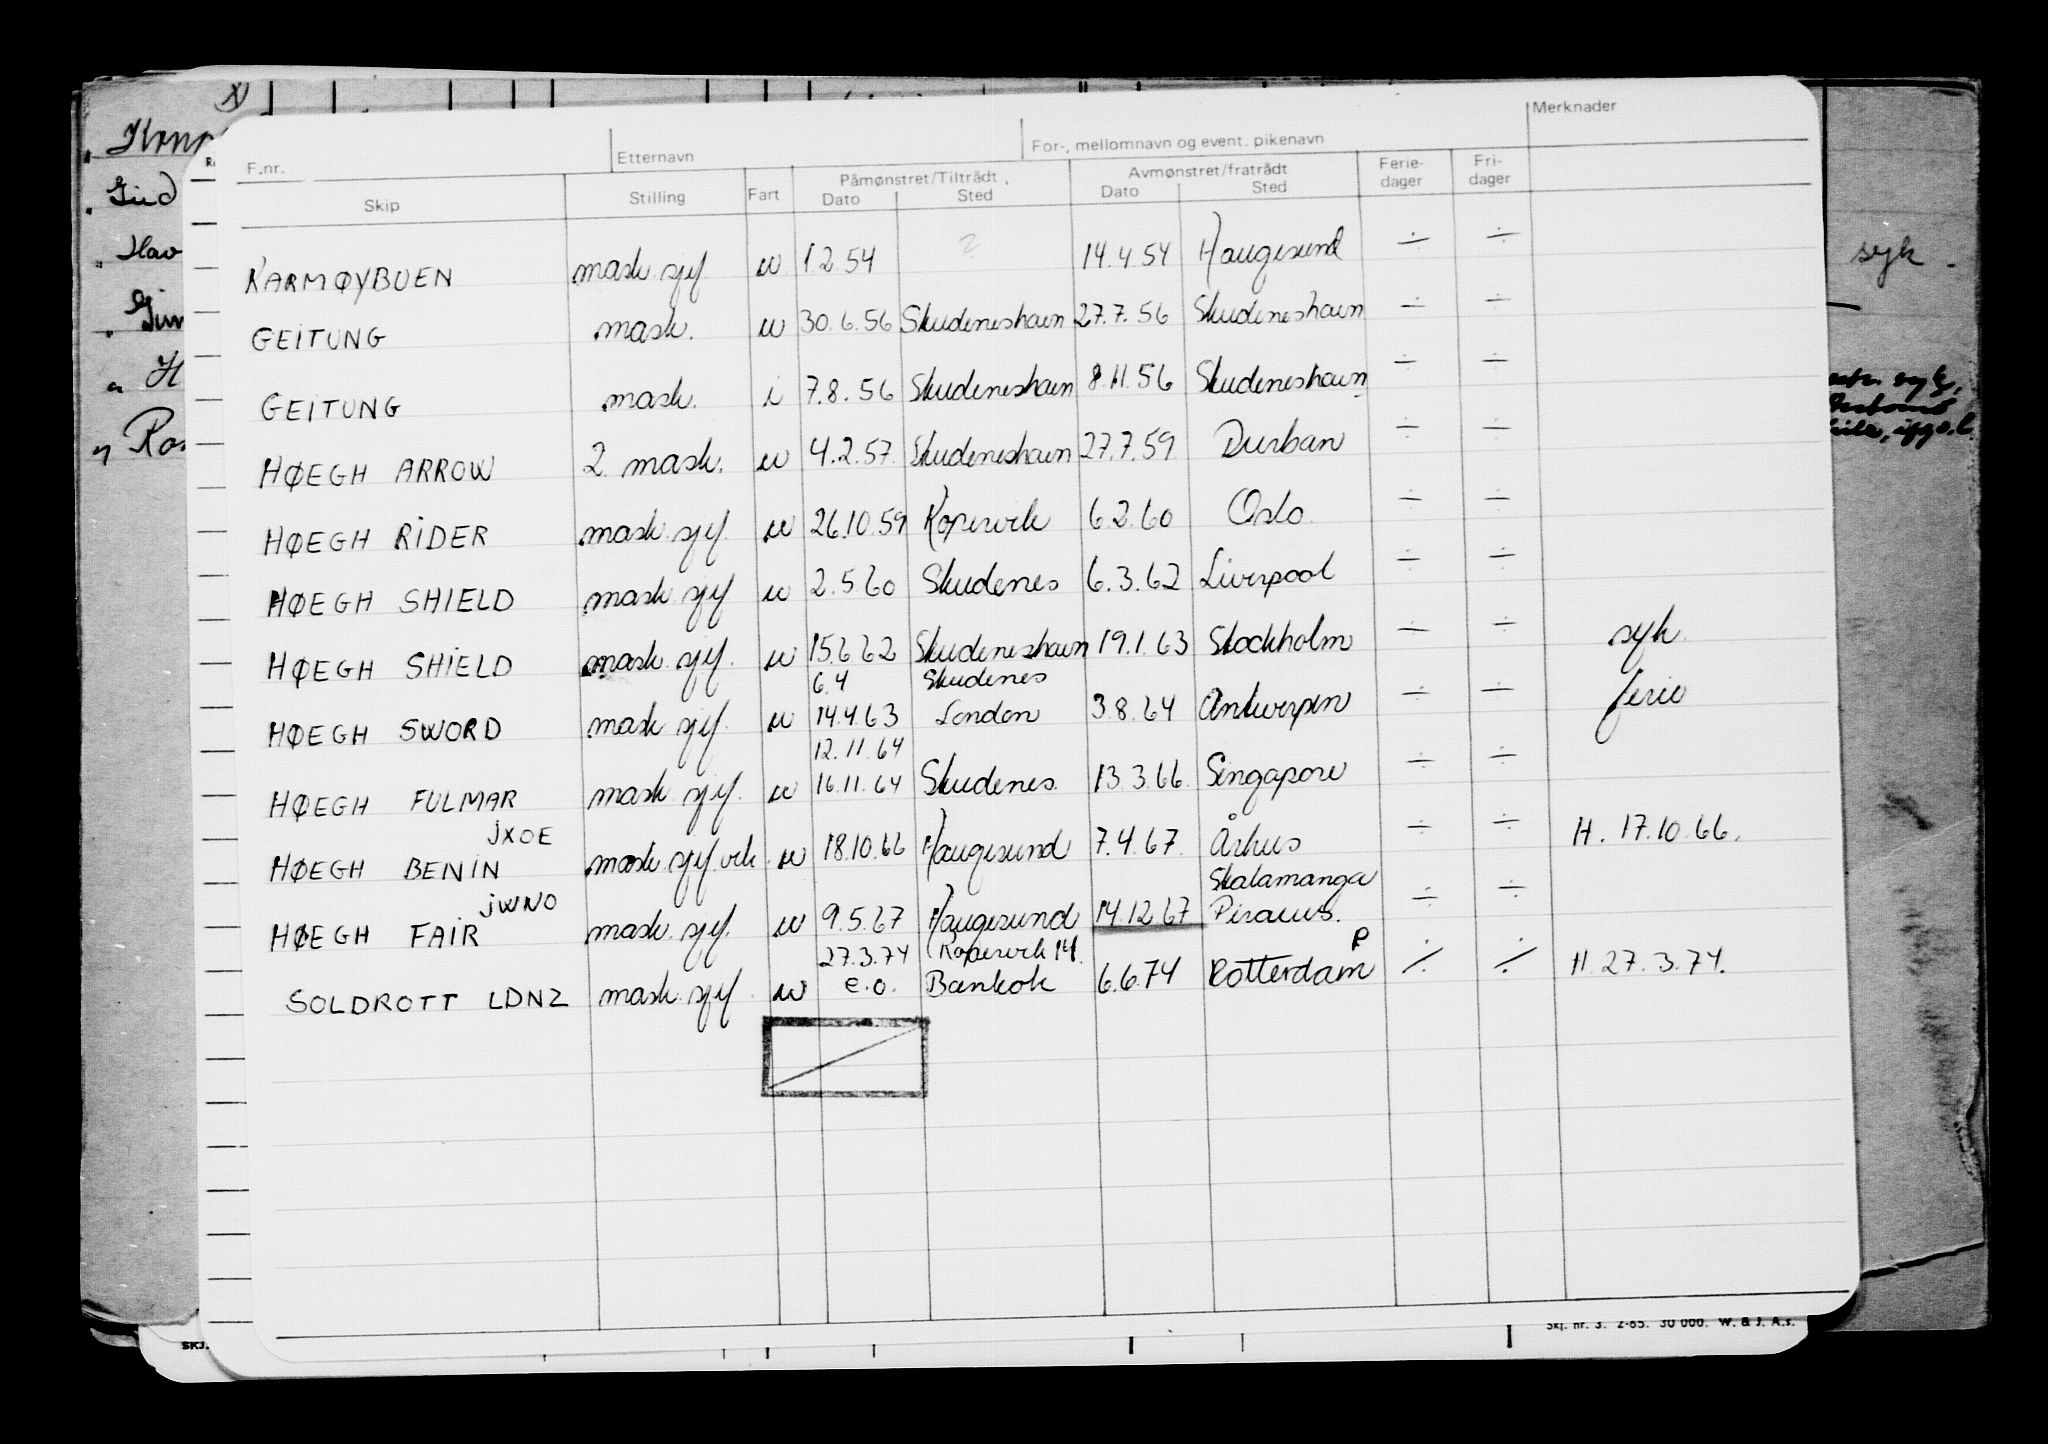 Merknader
F.nr. Etternavn For-, mellomnavn og event. pikenavn
Skip Stilling Fart Påmønstret/Tiltrådt Dato Sted Avmønstret/fratrådt Dato Sted Ferie-dager Fri-dager
KARMØYBUEN mask sjef u 1 2 54 ? 14.4 54 Haugesund ÷ ÷
GEITUNG mask. u 30.6.56 Skudeneshavn 27.7.56 Skudeneshavn ÷ ÷
GEITUNG mask. i 7.8.56 Skudeneshavn 8.11.56 Skudeneshavn ÷ ÷
HØEGH ARROW 2 mask. u 4.2.57 Skudeneshavn 27.7.59 Durban ÷ ÷
HØEGH RIDER mask sjef u 26.10.59 Kopervik 6.2.60 Oslo ÷ ÷
HØEGH SHIELD mask sjef u 2.5.60 Skudenes 6.3.62 Liverpool ÷ ÷
HØEGH SHIELD mask sjef. u 15.6 62 Skudeneshavn 19.1.63 Stockholm ÷ ÷ syk.
6.4 Skudenes
HØEGH SWORD mask sjef. u 14.4.63 London 3.8.64 Antwerpen ÷ ÷ ferie
12.11.64
HØEGH FULMAR mask sjef. u 16.11.64 Skudenes. 13.3.66. Singapore ÷ ÷
JXOE
HØEGH BENIN mask.sjef.vik. u 18.10.66 Haugesund 7.4.67. Århus ÷ ÷ H. 17.10.66.
JWNO Skalamanga
HØEGH FAIR mask. sjef. u 9.5.67 Haugesund 14.12.67 Piraeus. ÷ ÷
27.3.74 Kopervik 14. P
SOLDROTT LDNZ mask. sjef. u e.o. Bankok 6.6.74 Rotterdam ÷ ÷ H. 27.3.74.
Skj. nr. 3. 2-65. 30 000. W. & J. A.s.
SKJ.
syk.